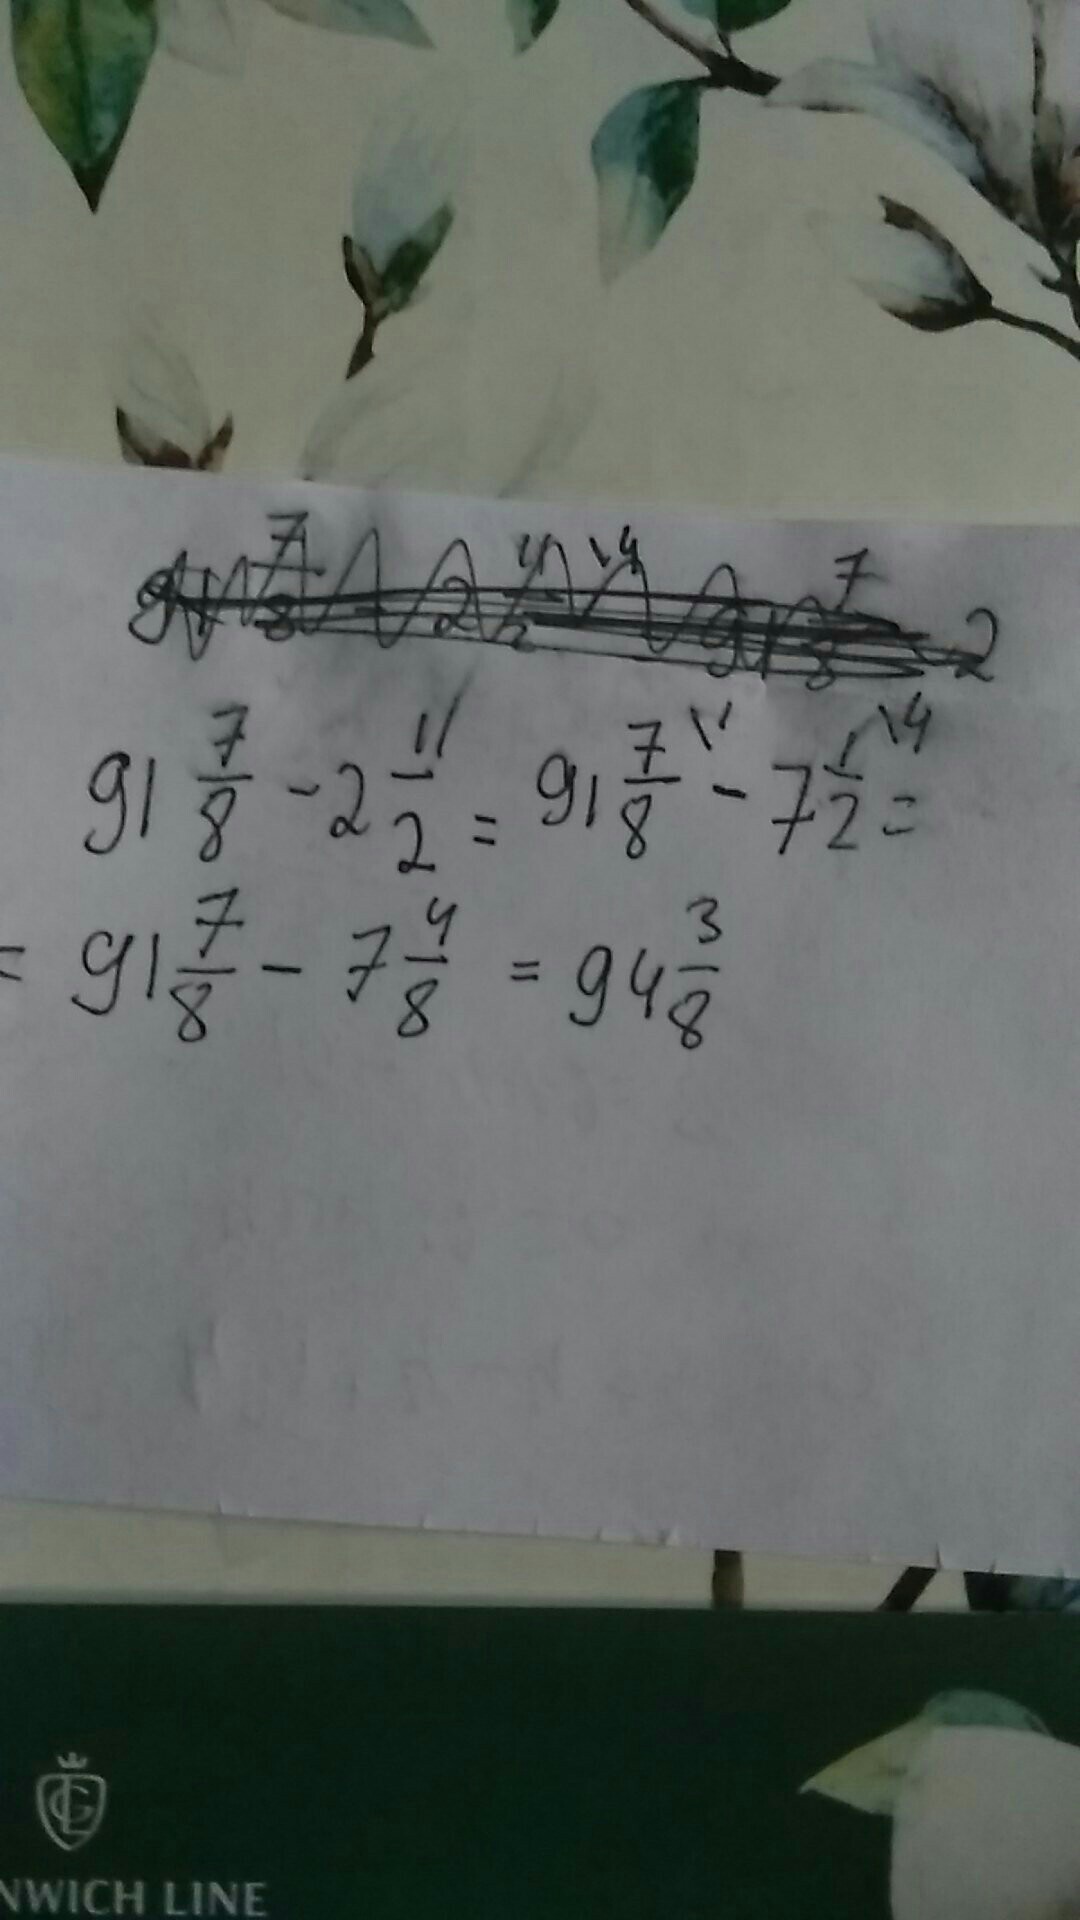 91 7/8 - 2 11/2 = 91 7/8 \1 - 7 1/2 \4 =
= 91 7/8 - 7 4/8 = 94 3/8
GL
NWICH LINE